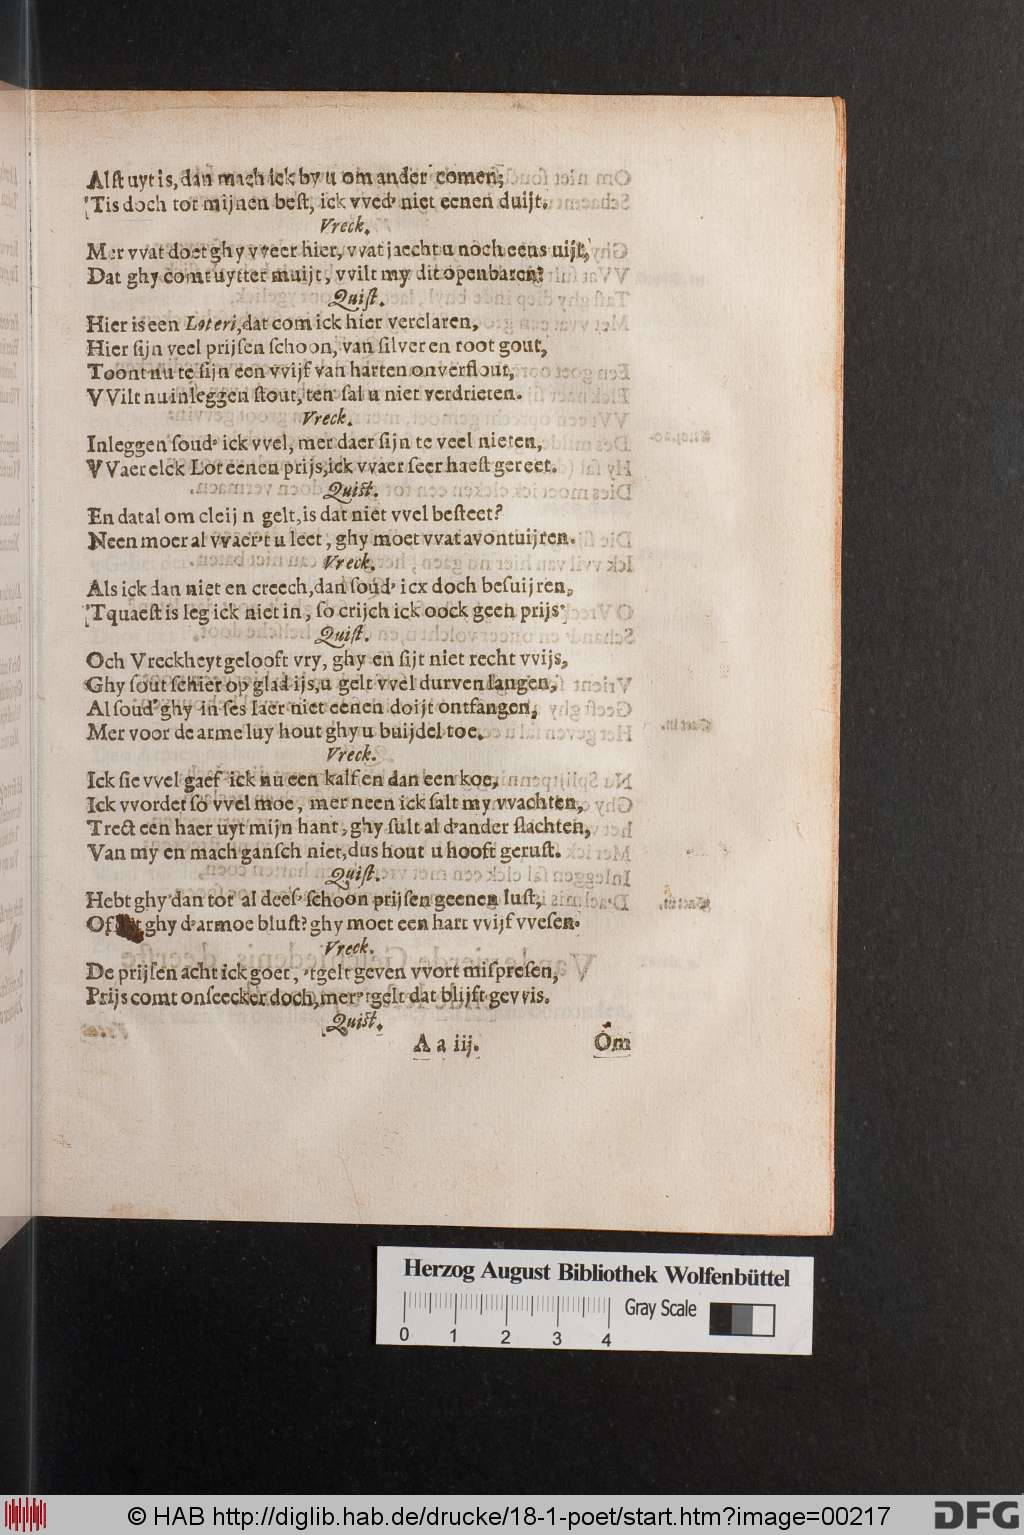 Alſt uyt is, dan mach ick by u om ander comen;
'Tis doch tot mijnen beſt, ick vved' niet eenen duijt.
Vreck.
Mer vvat doet ghy vveer hier, vvat jaecht u noch eens uijt,
Dat ghy comt uytter muijt, vvilt my dit openbaren?
Quiſt.
Hier is een Loteri, dat com ick hier verclaren,
Hier ſijn veel prijſen ſchoon, van ſilver en root gout,
Toont nu te ſijn een vvijf van harten onverflout,
VVilt nu inleggen ſtout, ten ſal u niet verdrieten.
Vreck.
Inleggen ſoud' ick vvel, mer daer ſijn te veel nieten,
VVaer elck Lot eenen prijs, ick vvaer ſeer haeſt gereet.
Quiſt.
En dat al om cleijn gelt, is dat niet vvel beſteet?
Neen moer al vvaer't u leet, ghy moet vvat avontuijren.
Vreck.
Als ick dan niet en creech, dan ſoud' icx doch beſuijren,
'Tquaeſt is leg ick niet in, ſo crijch ick oock geen prijs
Quiſt.
Och Vreckheyt gelooft vry, ghy en ſijt niet recht vvijs,
Ghy ſout ſchier op glad ijs, u gelt vvel durven langen,
Al ſoud' ghy in ſes Iaer niet eenen doijt ontfangen,
Mer voor de arme luy hout ghy u buijdel toe.
Vreck.
Ick ſie vvel gaef ick nu een kalf en dan een koe,
Ick vvordet ſo vvel moe, mer neen ick ſalt my vvachten,
Trect een haer uyt mijn hant, ghy ſult al d'ander ſlachten,
Van my en mach ganſch niet, dus hout u hooft geruſt.
Quiſt.
Hebt ghy dan tot al deeſ' ſchoon prijſen geenen luſt,
Of ghy d'armoe bluſt? ghy moet een hart vvijf vveſen.
Vreck.
De prijſen acht ick goet, 'tgelt geven vvort miſpreſen,
Prijs comt onſeecker doch, mer 'tgelt dat blijft gevvis.
Quiſt.
A a iij. Om
Herzog August Bibliothek Wolfenbüttel
Gray Scale
0 1 2 3 4
© HAB http://diglib.hab.de/drucke/18-1-poet/start.htm?image=00217
DFG